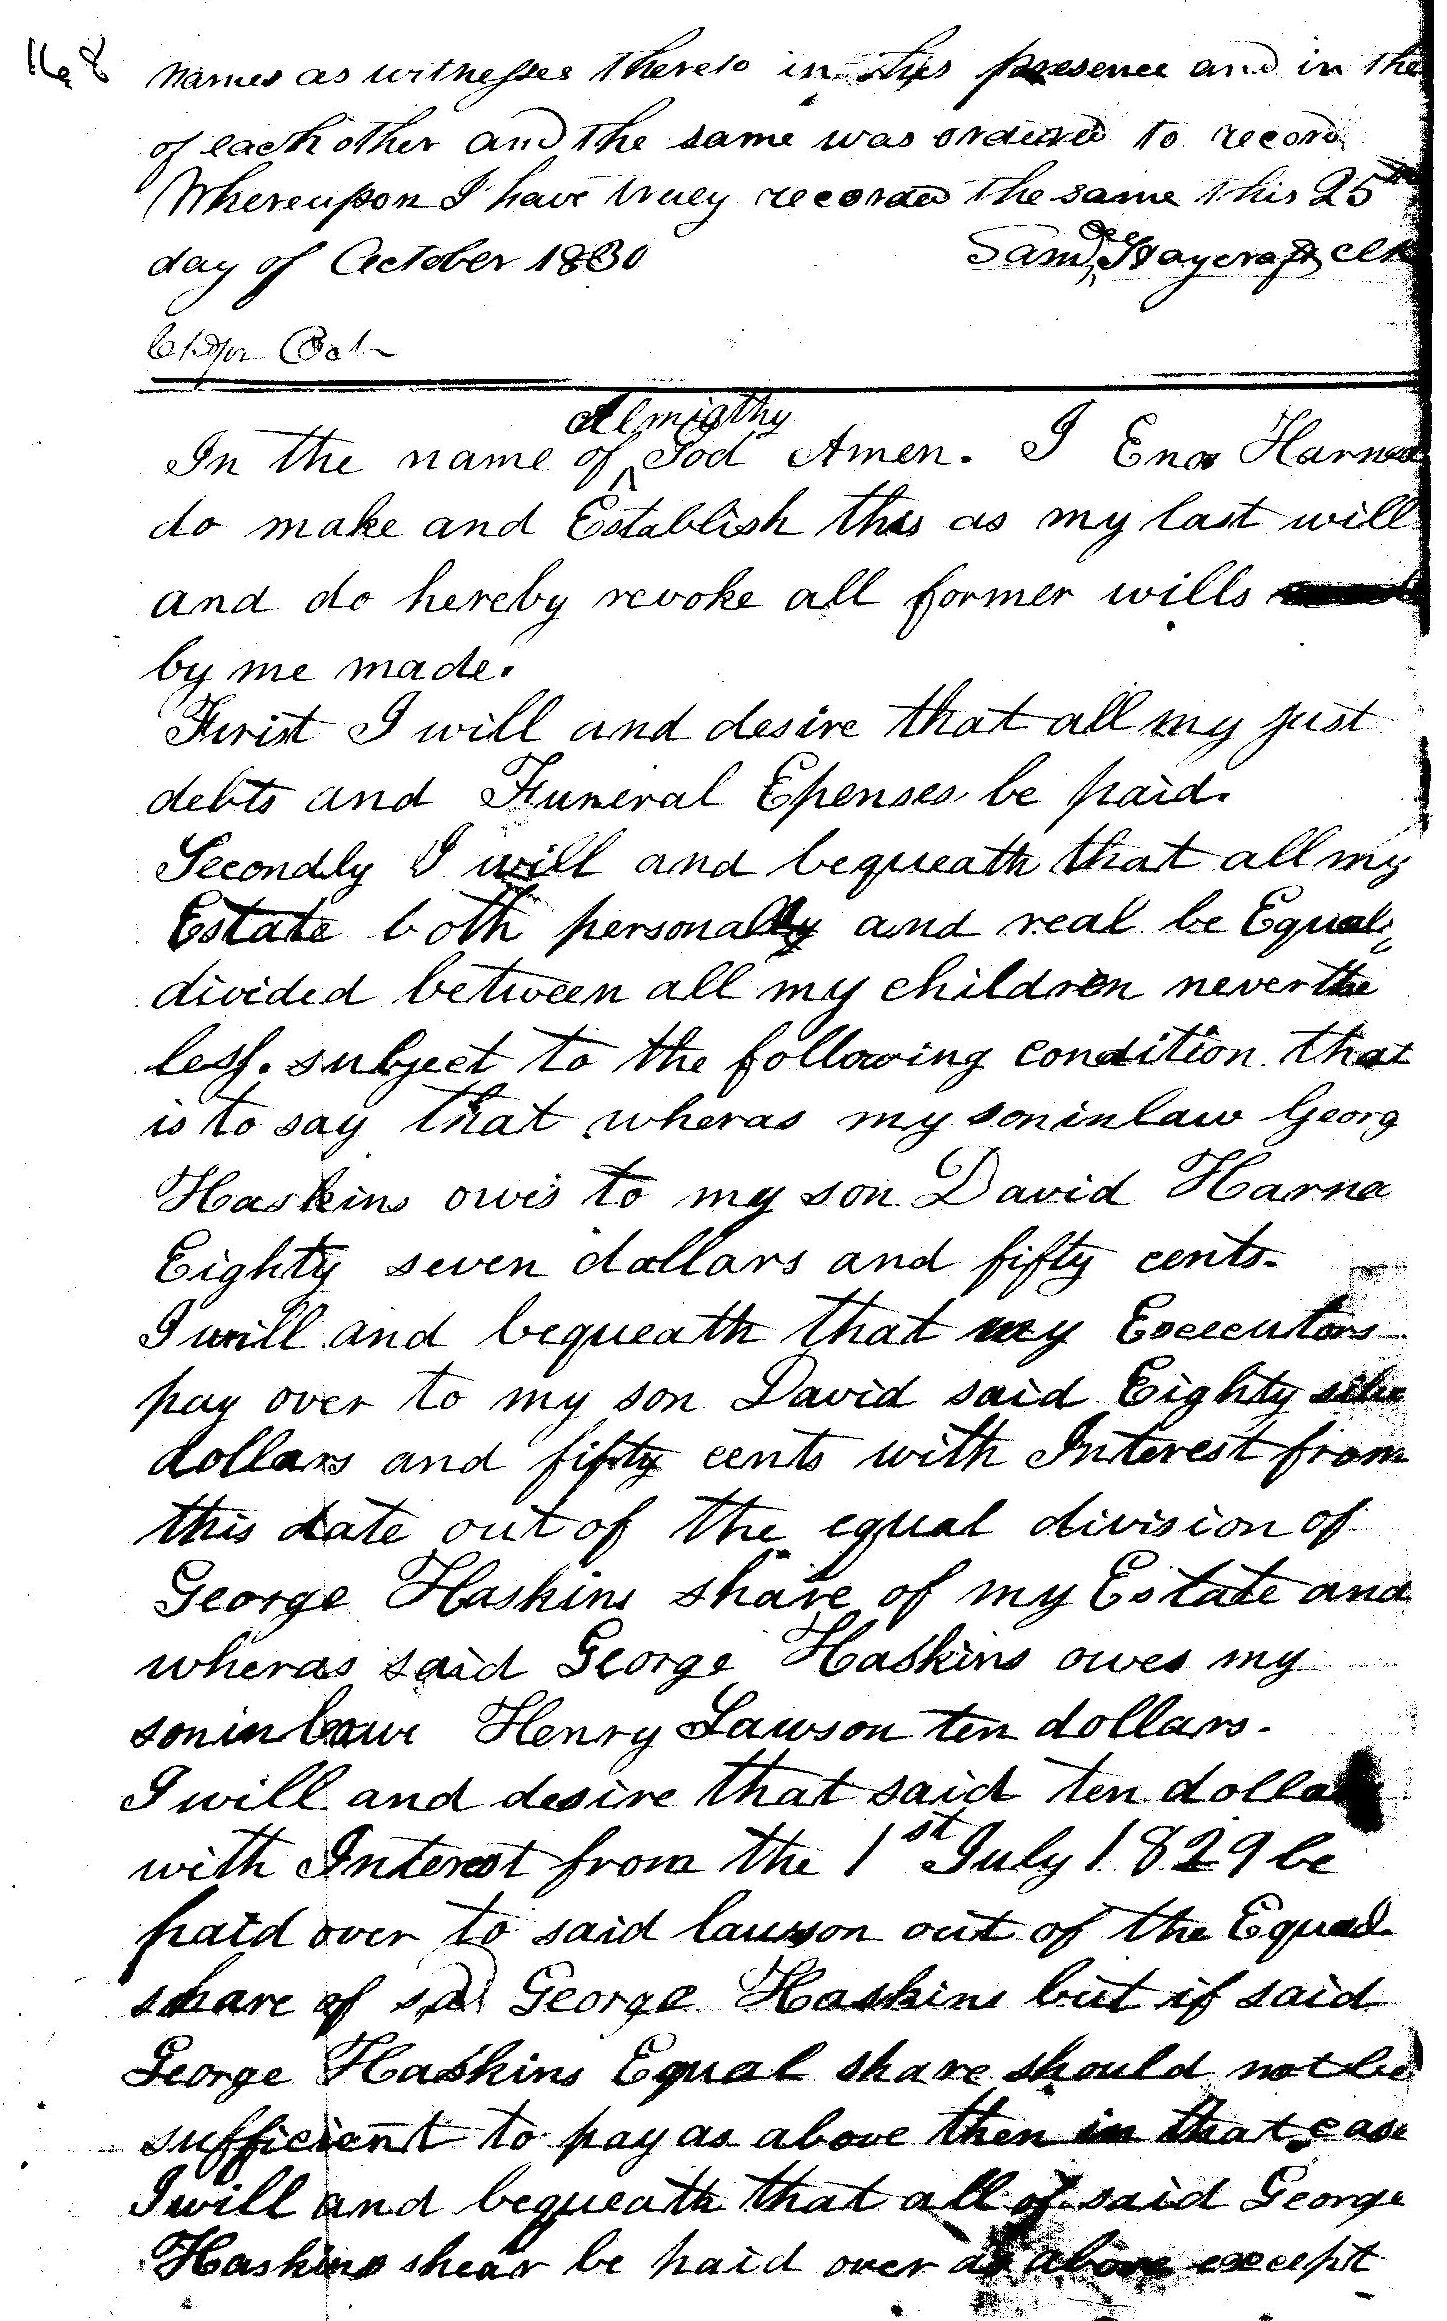 168
names as witnesses thereto in his presence and in the
of each other and the same was ordered to record
Whereupon I have truey recorded the same this 25th
day of October 1830 Saml Haycraft clk
In the name of Almigthy God Amen. I Enos Harned
do make and Establish this as my last will
and do hereby revoke all former wills
by me made.
Furist I will and desire that all my just
debts and Funeral Epenses be paid.
Secondly I will and bequeath that all my
Estate both personally and real be Equaly
divided between all my children neverthe
less. subject to the following condition that
is to say that wheras my soninlaw Georg
Haskins owes to my son David Harne
Eighty seven dollars and fifty cents.
I will and bequeath that my Executors
pay over to my son David said Eighty
dollars and fifty cents with Interest from
this date out of the equal division of
George Haskins share of my Estate and
wheras said George Haskins owes my
soninlawe Henry Lawson ten dollars.
I will and desire that said ten dollar
with Interest from the 1st July 1829 be
paid over to said lawson out of the Equal
share of sd George Haskins but if said
George Haskins Equal share should not be
sufficient to pay as above then in that case
I will and bequeath that all of said George
Haskins shear be paid over as above except